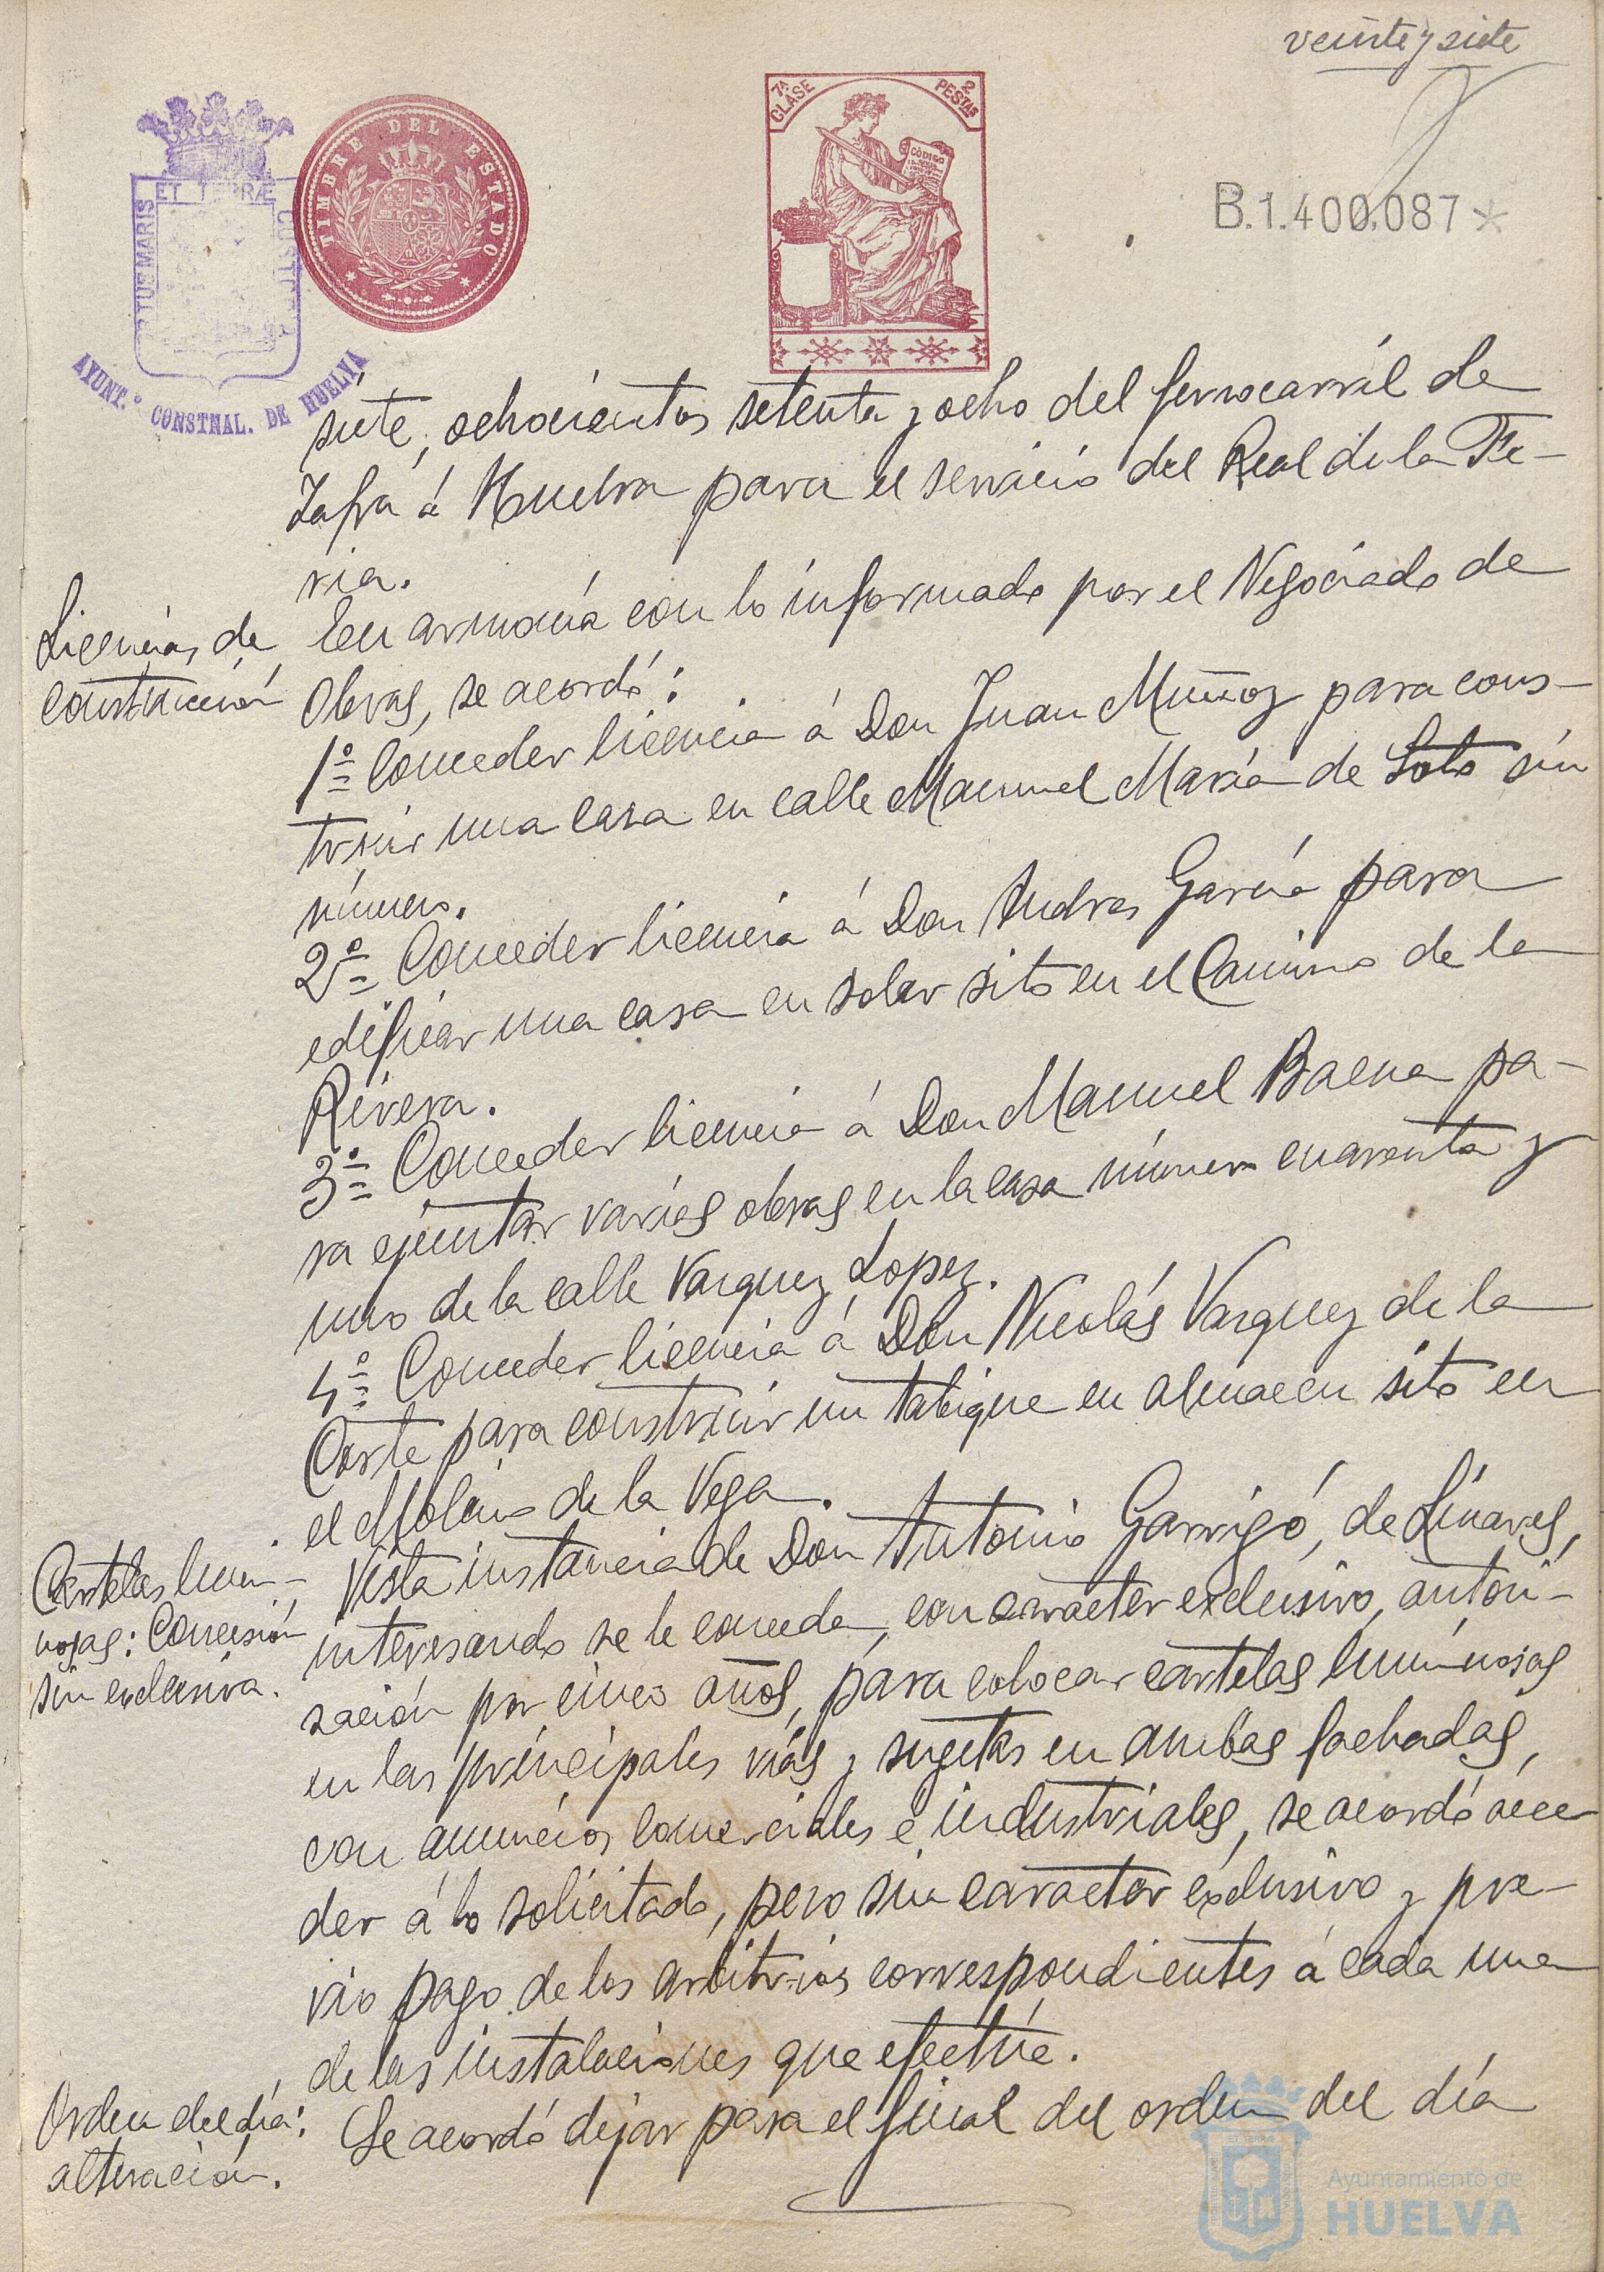 veinte y siete
7ª CLASE
2 PESTAS
CÓDIGO
TIMBRE DEL ESTADO
ET TERRÆ
MARIS
AYUNT.º CONSTNAL. DE HUELVA
B.1.400.087*
siete, ochocientos setenta y ocho del ferrocarril de
Zafra á Huelva para el servicio del Real de la Fe-
ria.
Licencias de
construcción
En armonía con lo informado por el Negociado de
Obras, se acordó:
1º Conceder licencia á Don Juan Muñoz para cons-
truir una casa en calle Manuel María de Soto sin
número.
2º Conceder licencia á Don Andres García para
edificar una casa en solar sito en el Camino de la
Rivera.
3º Conceder licencia á Don Manuel Baena pa-
ra ejecutar varias obras en la casa número cuarenta y
uno de la calle Vazquez Lopez.
4º Conceder licencia á Don Nicolás Vazquez de la
Corte para construir un tabique en almacen sito en
el Molino de la Vega.
Cartelas lumi-
nosas: Concesión
sin exclusiva.
Vista instancia de Don Antonio Garrigó, de Linares,
interesando se le conceda, con caracter exclusivo, autori-
zación por cinco años, para colocar cartelas luminosas
en las principales vías y sujetas en ambas fachadas,
con anuncios comerciales é industriales, se acordó acce
der á lo solicitado, pero sin caracter exclusivo y pre-
vio pago de los arbitrios correspondientes á cada una
de las instalaciones que efectúe.
Orden del día:
alteración.
Se acordó dejar para el final del orden del día
Ayuntamiento de
HUELVA